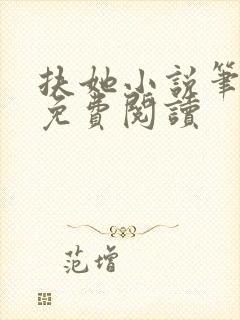 扶她小说笔
免費閱讀
范增